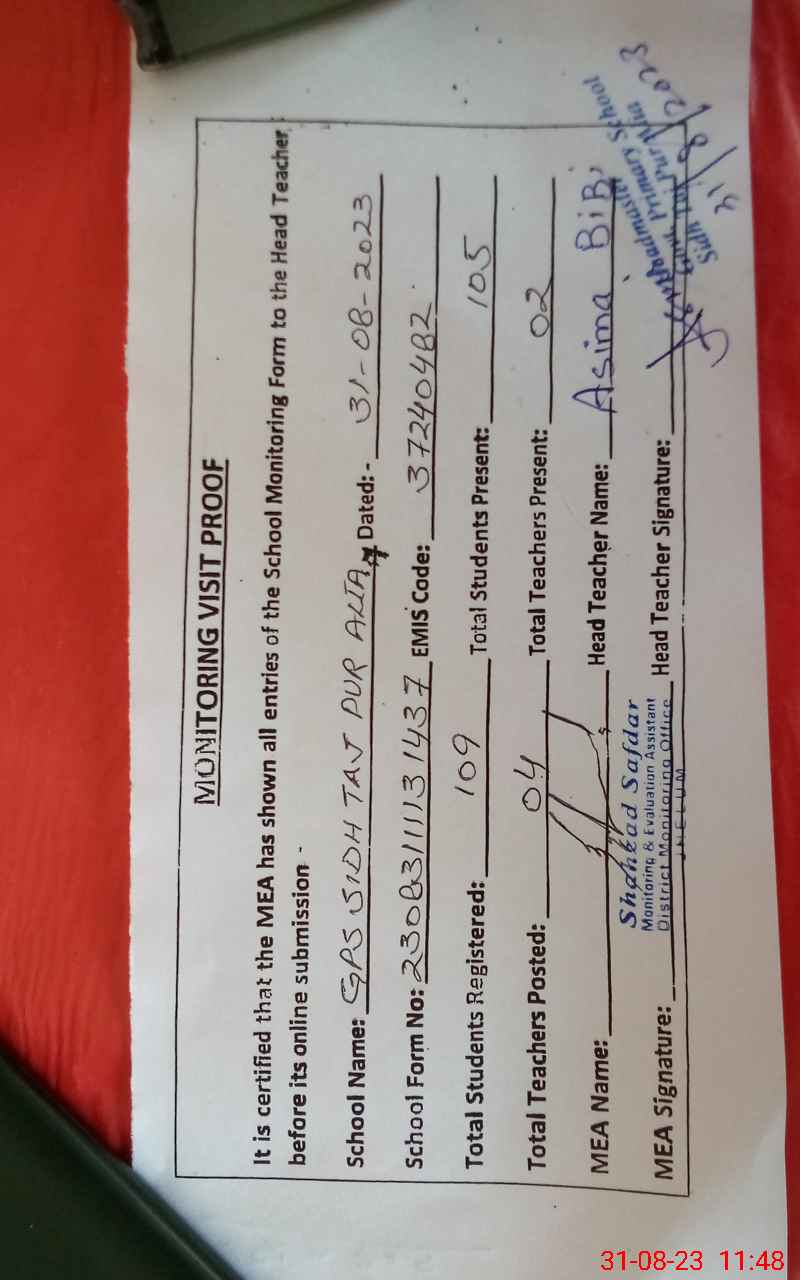 MONITORING VISIT PROOF
It is certified that the MEA has shown all entries of the School Monitoring Form to the Head Teacher
before its online submission -
School Name: GPS SIDH TAJ PUR ALIA Dated: - 31-08-2023
School Form No: 230831111131437 EMIS Code: 37240482
Total Students Registered: 109 Total Students Present: 105
Total Teachers Posted: 04 Total Teachers Present: 02
MEA Name: Head Teacher Name: Asima BiBi
Shahzad Safdar
Monitoring & Evaluation Assistant
District Monitoring Office
JHELUM
MEA Signature: Head Teacher Signature:
Headmaster
Primary School
Sidh Taj Pur Alia
31/8/2023
31-08-23 11:48